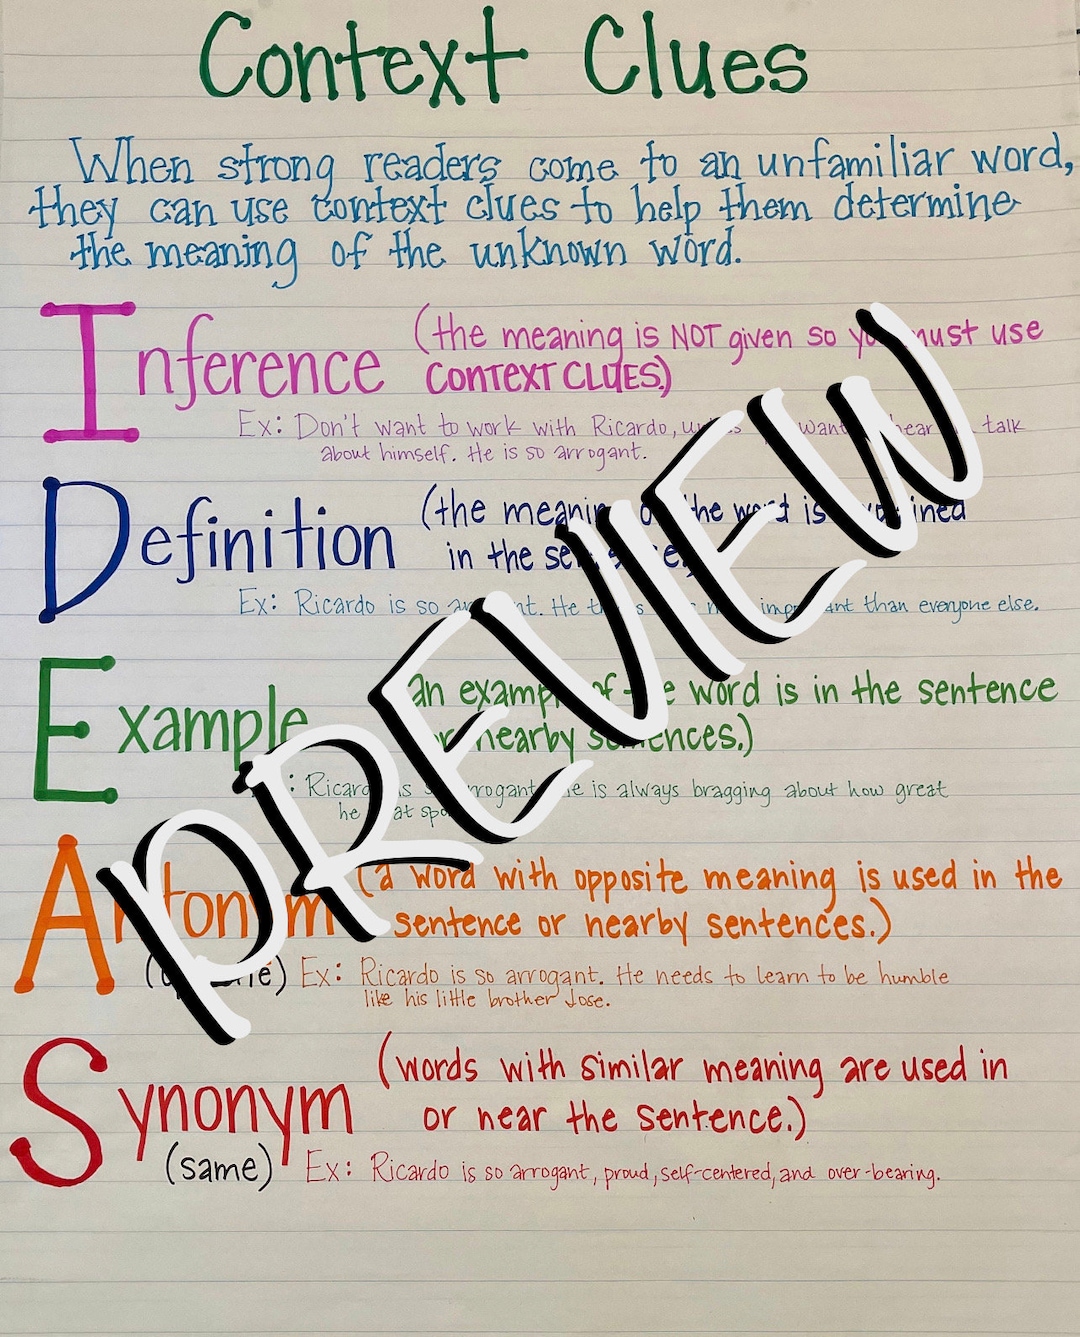 Context Clues
When strong readers come to an unfamiliar word,
they can use context clues to help them determine
the meaning of the unknown word.
Inference (the meaning is NOT given so you must use
CONTEXT CLUES.)
Ex: Don't want to work with Ricardo, want hear talk
about himself. He is so arrogant.
Definition (the meaning of the word is explained
in the sentence.)
Ex: Ricardo is so arrogant. He thinks more important than everyone else.
Example an example of the word is in the sentence
or nearby sentences.)
: Ricardo is so arrogant. He is always bragging about how great
he at
Antonym (a word with opposite meaning is used in the
sentence or nearby sentences.)
Ex: Ricardo is so arrogant. He needs to learn to be humble
like his little brother Jose.
Synonym (words with similar meaning are used in
or near the sentence.)
(same) Ex: Ricardo is so arrogant, proud, self-centered, and over-bearing.
PREVIEW